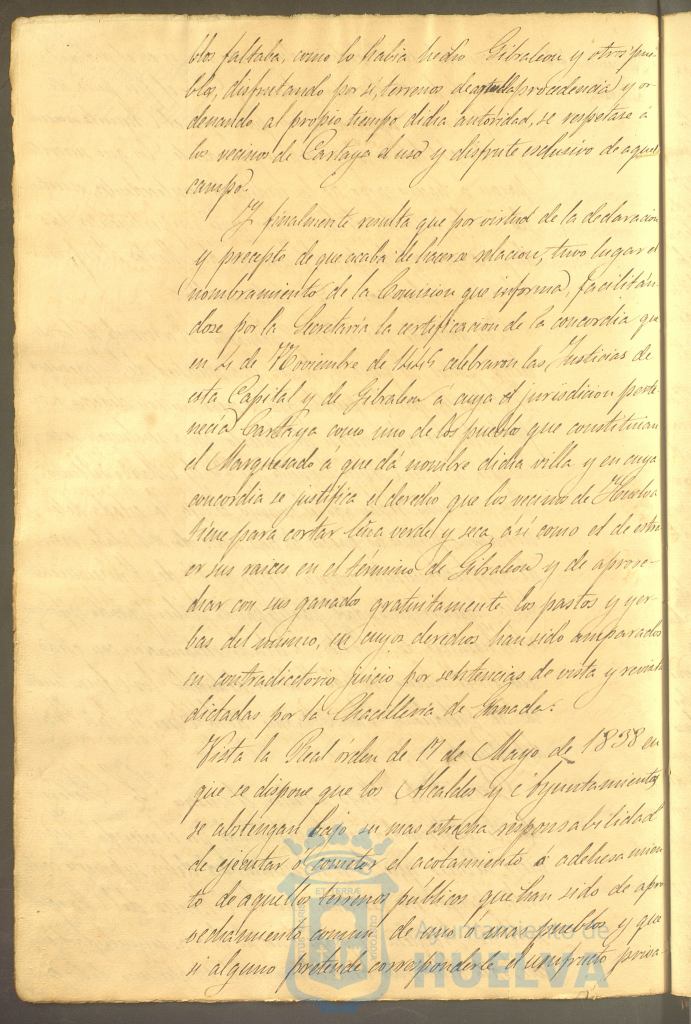 blos faltaba, como lo habia hecho Gibraleon y otros pue-
blos, disfrutando por si, terrenos de aquella procedencia y or-
denando al propio tiempo dicha autoridad, se respetase á
los vecinos de Cartaya el uso y disfrute esclusivo de aquel
campo.
Y finalmente resulta que por virtud de la declaracion
y precepto de que acaba de hacerse relacion, tuvo lugar el
nombramiento de la Comision que informa, facilitán-
dose por la Secretaría la certificacion de la concordia que
en 4 de Noviembre de celebraron las Justicias de
esta Capital y de Gibraleon á cuya jurisdicion perte-
necia Cartaya como uno de los pueblos que constituian
el Marquesado á que dá nombre dicha villa y en cuya
concordia se justifica el derecho que los vecinos de Huelva
tiene para cortar leña verde y seca, asi como el de estra-
er sus raices en el término de Gibraleon y de aprove-
char con sus ganados gratuitamente los pastos y yer-
bas del mismo, en cuyos derechos han sido amparados
en contradictorio juicio por sentencias de vista y revista
dictadas por la Chacilleria de Granada:
Vista la Real órden de 17 de Mayo de 1838 en
que se dispone que los Alcaldes y Ayuntamientos
se abstengan bajo su mas estrecha responsabilidad
de ejecutar ó cometer el acotamiento ó adehesamien-
to de aquellos terrenos públicos que han sido de apro
vechamiento comun de uno ó mas pueblos y que
si alguno pretende corresponderle el usufructo priva-
Ayuntamiento de
HUELVA